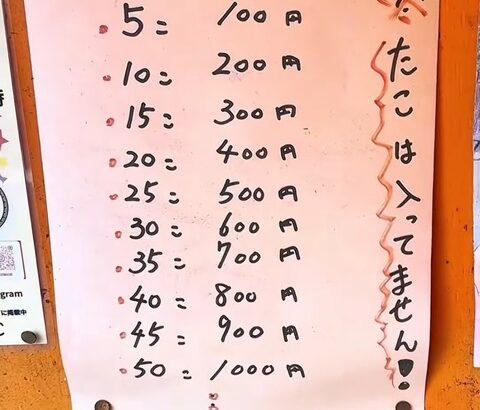 5= 100円
10= 200円
15= 300円
20= 400円
25= 500円
30= 600円
35= 700円
40= 800円
45= 900円
50= 1000円
※たこは入ってません!
gram
に掲載中